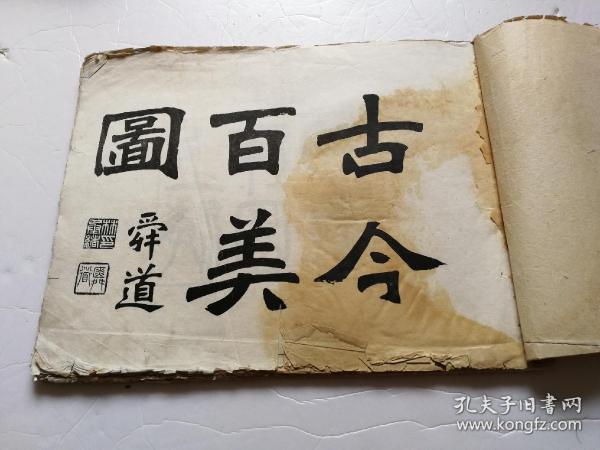 古今
百美
圖
舜道
孔夫子旧書网
www.kongfz.com